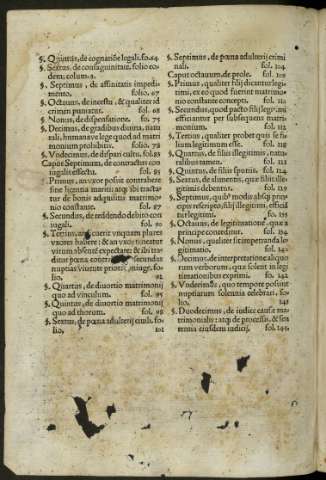 §. Quintus, de cognatiõe legali. fo.64
§. Sextus, de consaguinitate. folio eo-
dem: colum. 2.
§. Septimus, de affinitatis impedi-
mento. folio, 67
§. Octauus, de incestu, & qualiter id
crimen puniatur. fol. 72
§. Nonus, de dispensatione. fo. 75
§. Decimus, de gradibus diuina, natu
rali, humanave lege quo ad matri
monium prohibitis. folio. 78
§. Vndecimus, de dispari cultu. fol.85
Caput Septimum, de contractus con
iugalis effectu. fol. 85
§. Primus, an vxor possit contrahere
sine licentia mariti: atq; ibi tracta-
tur de bonis adquisitis matrimo-
nio constante. fol. 87
§. Secundus, de reddendo debito con
iugali. fol. 90
§. Tertius, an liceat vnquam plures
vxores habere: & an vxor teneatur
virum absentẽ expectare: & ibi tra-
ditur pœna contra secundas
nuptias viuente priori
lio, 94
§. Quartus, de diuortio matrimonij
quo ad vinculum. fol. 95
§. Quintus, de diuortio matrimonij
quo ad thorum. fol. 98
§. Sextus, de pœna adulterij ciuili. fo-
lio, 101
§. Septimus, de pœna adulterij crimi
nali. fol. 104
Caput octauum, de prole. fol. 110
§. Primus, qualiter filij dicantur legi-
timi, ex eo quod fuerint matrimo-
nio constante concepti. fol. 110
§. Secundus, quod pacto filij legitimi
efficiantur per subsequens matri-
monium. fol. 113
§. Tertius, qualiter probet quis se fi-
lium legitimum esse. fol. 118
§. Quartus, de filiis illegitimis, natu-
ralibus tamen. fol. 121
§. Quintus, de filiis spuriis. fol. 124
§. Sextus, de alimentis, quæ filiis ille-
gitimis debentur. fol. 129
§. Septimus, quibꝰ modis absq; prin-
cipis rescripto, filij illegitimi, efficiã
tur legitimi. fo. 133
§. Octauus, de legitimatione, quæ a
principe conceditur. fol. 134
§. Nonus, qualiter sit impetranda le-
gitimatio. fol. 141
§. Decimus, de interpretatione aliquo
rum verborum, quæ solent in legi
timationibus exprimi. fo. 142
§. Vndecimus, quo tempore possint
nuptiarum solennia celebrari. fo-
lio, 142
§. Duodecimus, de iudice causæ ma-
trimonialis: atq; de processu, & sen
tentia eiusdem iudicij. fol. 143.